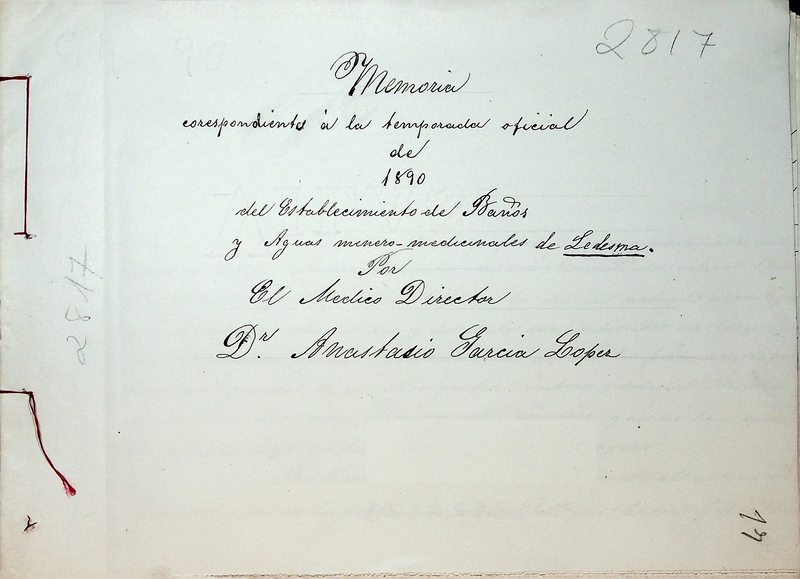 2817
Memoria
corespondiente à la temporada oficial
de
1890
del Establecimiento de Baños
y Aguas minero-medicinales de Ledesma.
Por
El Medico Director
Dr. Anastasio Garcia Lopez
2817